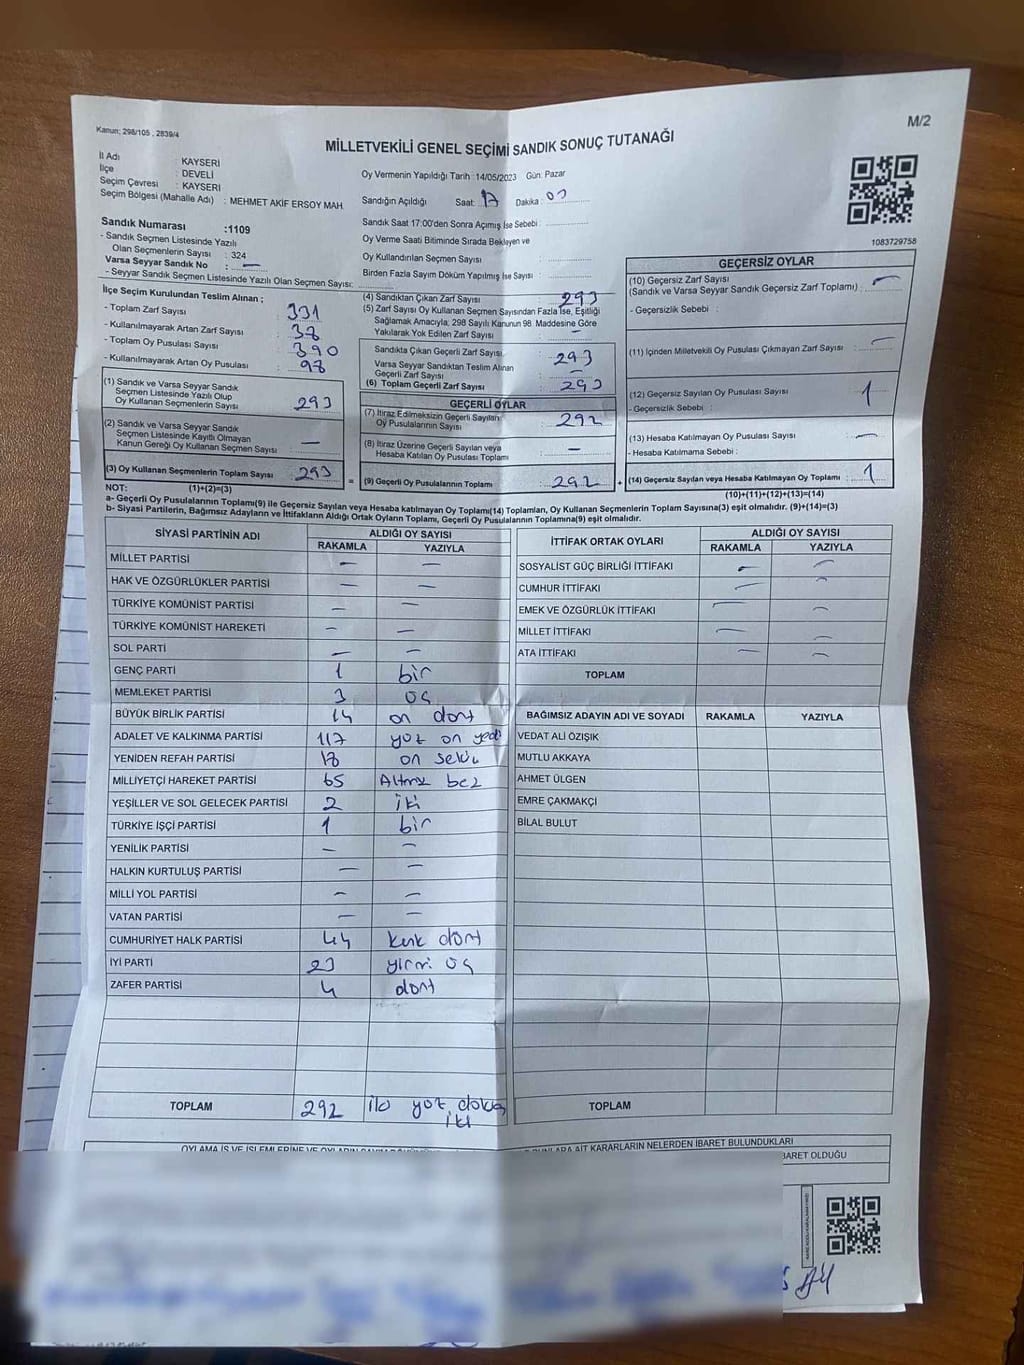 Kanun; 298/105 , 2839/4
M/2
MİLLETVEKİLİ GENEL SEÇİMİ SANDIK SONUÇ TUTANAĞI
İl Adı : KAYSERİ
İlçe : DEVELİ
Seçim Çevresi : KAYSERİ
Seçim Bölgesi (Mahalle Adı) : MEHMET AKİF ERSOY MAH.
Oy Vermenin Yapıldığı Tarih : 14/05/2023 Gün: Pazar
Sandığın Açıldığı Saat: 17 Dakika: 03
Sandık Numarası :1109
- Sandık Seçmen Listesinde Yazılı
Olan Seçmenlerin Sayısı : 324
Varsa Seyyar Sandık No : —
- Seyyar Sandık Listesinde Yazılı Olan Seçmen Sayısı:
Sandık Saat 17:00'den Sonra Açımış İse Sebebi :
Oy Verme Saati Bitiminde Sırada Bekleyen ve
Oy Kullandırılan Seçmen Sayısı :
Birden Fazla Sayım Döküm Yapılmış İse Sayısı :
1083729758
İlçe Seçim Kurulundan Teslim Alınan ;
- Toplam Zarf Sayısı : 331
- Kullanılmayarak Artan Zarf Sayısı : 38
- Toplam Oy Pusulası Sayısı : 390
- Kullanılmayarak Artan Oy Pusulası : 98
(1) Sandık ve Varsa Seyyar Sandık
Seçmen Listesinde Yazılı Olup
Oy Kullanan Seçmenlerin Sayısı : 293
(2) Sandık ve Varsa Seyyar Sandık
Seçmen Listesinde Kayıtlı Olmayan
Kanun Gereği Oy Kullanan Seçmen Sayısı : —
(3) Oy Kullanan Seçmenlerin Toplam Sayısı : 293
(4) Sandıktan Çıkan Zarf Sayısı : 293
(5) Zarf Sayısı Oy Kullanan Seçmen Sayısından Fazla İse, Eşitliği
Sağlamak Amacıyla, 298 Sayılı Kanunun 98. Maddesine Göre
Yakılarak Yok Edilen Zarf Sayısı : —
Sandıkta Çıkan Geçerli Zarf Sayısı : 293
Varsa Seyyar Sandıktan Teslim Alınan
Geçerli Zarf Sayısı : —
(6) Toplam Geçerli Zarf Sayısı : 293
GEÇERLİ OYLAR
(7) İtiraz Edilmeksizin Geçerli Sayılan
Oy Pusulalarının Sayısı : 292
(8) İtiraz Üzerine Geçerli Sayılan veya
Hesaba Katılan Oy Pusulası Toplamı : —
= (9) Geçerli Oy Pusulalarının Toplamı : 292 +
GEÇERSİZ OYLAR
(10) Geçersiz Zarf Sayısı
(Sandık ve Varsa Seyyar Sandık Geçersiz Zarf Toplamı) : —
- Geçersizlik Sebebi :
(11) İçinden Milletvekili Oy Pusulası Çıkmayan Zarf Sayısı : —
(12) Geçersiz Sayılan Oy Pusulası Sayısı : 1
- Geçersizlik Sebebi :
(13) Hesaba Katılmayan Oy Pusulası Sayısı : —
- Hesaba Katılmama Sebebi :
(14) Geçersiz Sayılan veya Hesaba Katılmayan Oy Toplamı : 1
NOT: (1)+(2)=(3)
(10)+(11)+(12)+(13)=(14)
a- Geçerli Oy Pusulalarının Toplamı(9) ile Geçersiz Sayılan veya Hesaba katılmayan Oy Toplamı(14) Toplamları, Oy Kullanan Seçmenlerin Toplam Sayısına(3) eşit olmalıdır. (9)+(14)=(3)
b- Siyasi Partilerin, Bağımsız Adayların ve İttifakların Aldığı Ortak Oyların Toplamı, Geçerli Oy Pusulalarının Toplamına(9) eşit olmalıdır.
SİYASİ PARTİNİN ADI ALDIĞI OY SAYISI
RAKAMLA YAZIYLA
MİLLET PARTİSİ — —
HAK VE ÖZGÜRLÜKLER PARTİSİ — —
TÜRKİYE KOMÜNİST PARTİSİ — —
TÜRKİYE KOMÜNİST HAREKETİ — —
SOL PARTİ — —
GENÇ PARTİ 1 bir
MEMLEKET PARTİSİ 3 üç
BÜYÜK BİRLİK PARTİSİ 14 on dört
ADALET VE KALKINMA PARTİSİ 117 yüz on yedi
YENİDEN REFAH PARTİSİ 18 on sekiz
MİLLİYETÇİ HAREKET PARTİSİ 65 Altmış beş
YEŞİLLER VE SOL GELECEK PARTİSİ 2 iki
TÜRKİYE İŞÇİ PARTİSİ 1 bir
YENİLİK PARTİSİ — —
HALKIN KURTULUŞ PARTİSİ — —
MİLLİ YOL PARTİSİ — —
VATAN PARTİSİ — —
CUMHURİYET HALK PARTİSİ 44 kırk dört
İYİ PARTİ 23 yirmi üç
ZAFER PARTİSİ 4 dört
TOPLAM 292 iki yüz doksan
iki
İTTİFAK ORTAK OYLARI ALDIĞI OY SAYISI
RAKAMLA YAZIYLA
SOSYALİST GÜÇ BİRLİĞİ İTTİFAKI — —
CUMHUR İTTİFAKI — —
EMEK VE ÖZGÜRLÜK İTTİFAKI — —
MİLLET İTTİFAKI — —
ATA İTTİFAKI — —
TOPLAM
BAĞIMSIZ ADAYIN ADI VE SOYADI RAKAMLA YAZIYLA
VEDAT ALİ ÖZIŞIK
MUTLU AKKAYA
AHMET ÜLGEN
EMRE ÇAKMAKÇİ
BİLAL BULUT
TOPLAM
AİT KARARLARIN NELERDEN İBARET BULUNDUKLARI
OLDUĞU